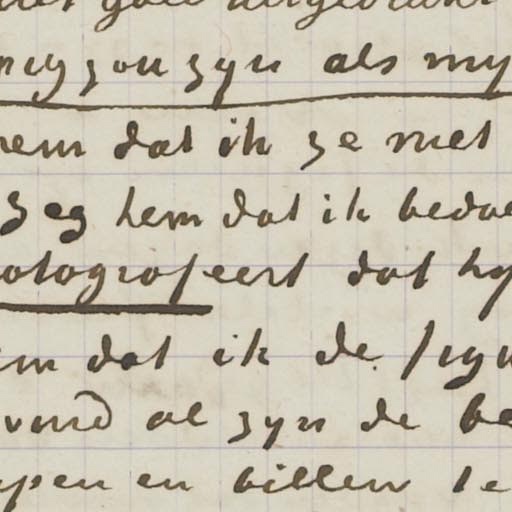 niet goed uitgedrukt
my zou zyn als my
hem dat ik ze niet
Zeg hem dat ik bedoe
otografeert dat hy
em dat ik de figu
vind al zyn de be
open en billen te